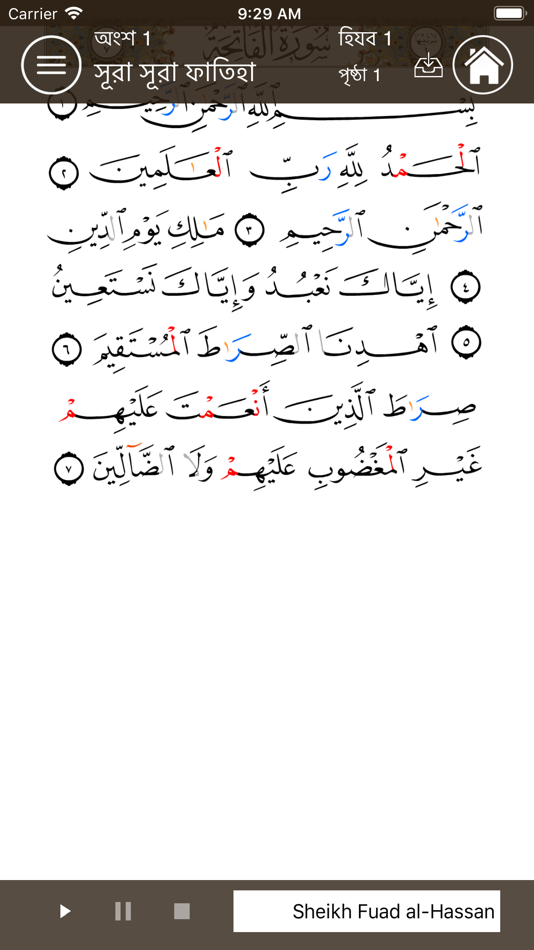 Carrier 9:29 AM
অংশ 1 হিযব 1
সূরা সূরা ফাতিহা পৃষ্ঠা 1
سُورَةُ الْفَاتِحَةِ
بِسْمِ ٱللَّهِ ٱلرَّحْمَٰنِ ٱلرَّحِيمِ ١
ٱلْحَمْدُ لِلَّهِ رَبِّ ٱلْعَٰلَمِينَ ٢
ٱلرَّحْمَٰنِ ٱلرَّحِيمِ ٣ مَٰلِكِ يَوْمِ ٱلدِّينِ
٤ إِيَّاكَ نَعْبُدُ وَإِيَّاكَ نَسْتَعِينُ
٥ ٱهْدِنَا ٱلصِّرَٰطَ ٱلْمُسْتَقِيمَ ٦
صِرَٰطَ ٱلَّذِينَ أَنْعَمْتَ عَلَيْهِمْ
غَيْرِ ٱلْمَغْضُوبِ عَلَيْهِمْ وَلَا ٱلضَّآلِّينَ ٧
Sheikh Fuad al-Hassan